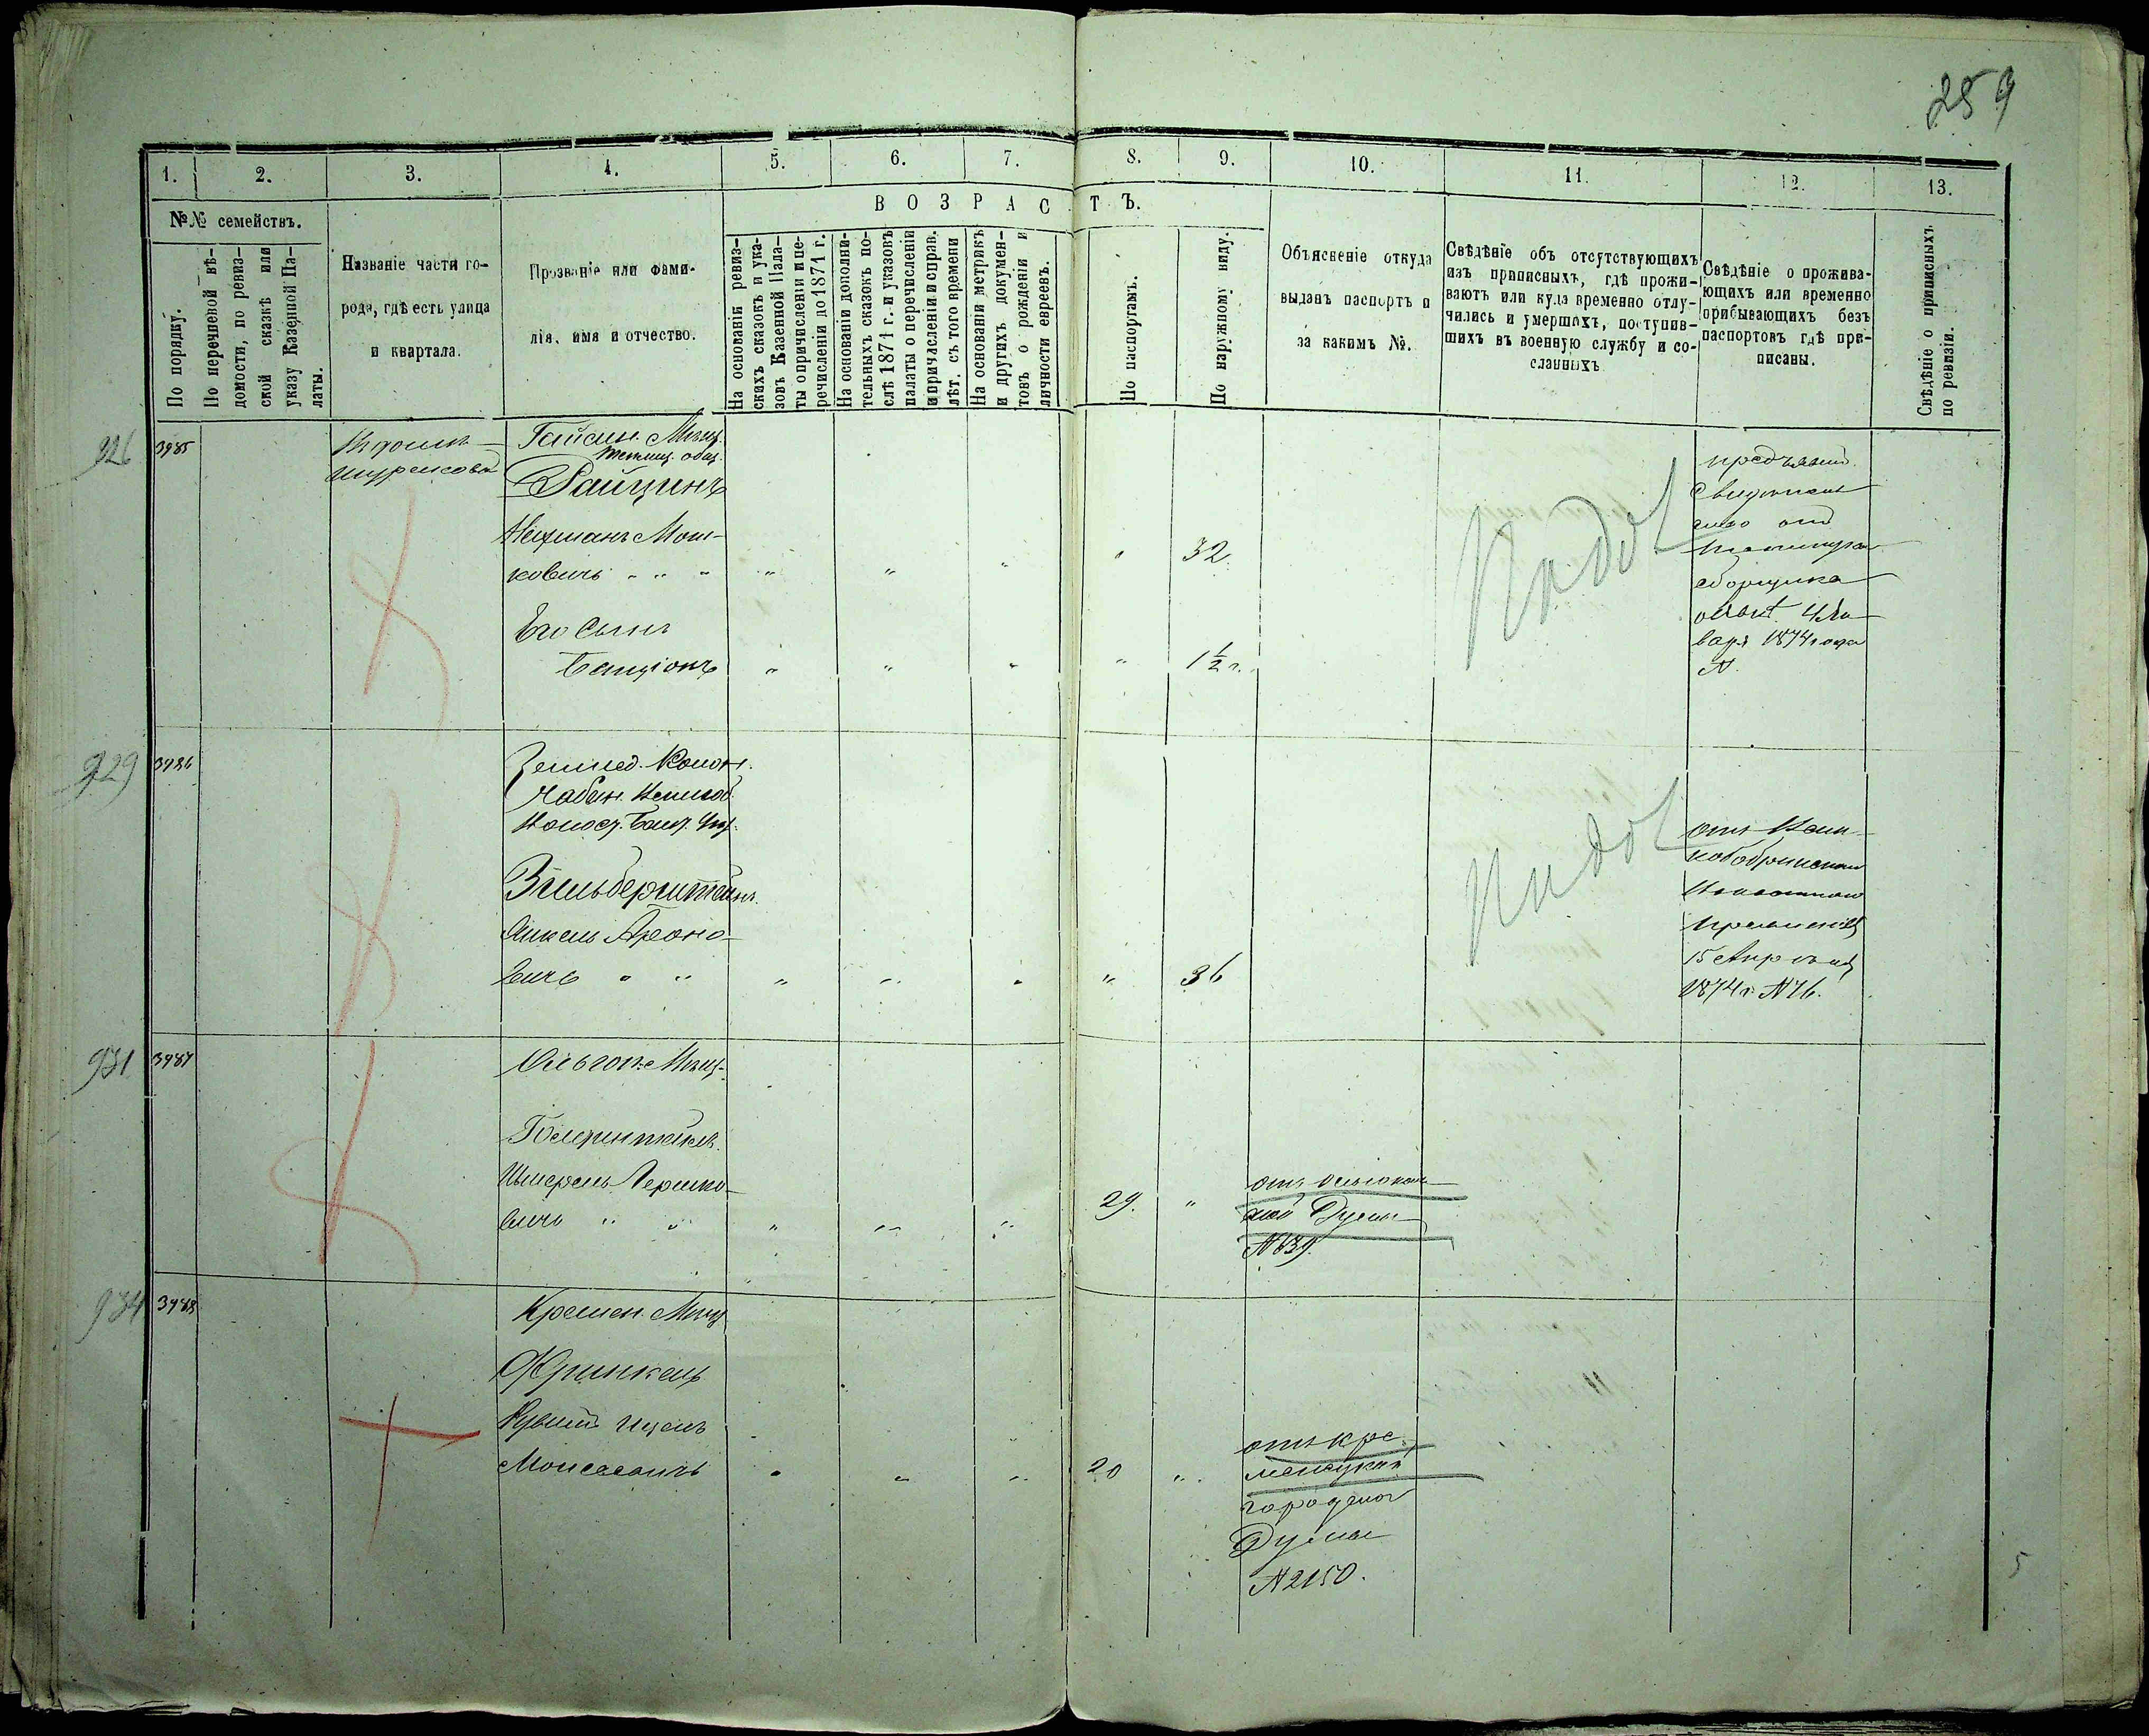 259
1.
2.
3.
4.
5.
6.
7.
8.
9.
10.
11.
12.
13.
№№ семействъ.
По порядку.
По перечневой вѣ-
домости, по ревиз-
ской сказкѣ или
указу Казенной Па-
латы.
Названіе части го-
рода, гдѣ есть улица
и квартала.
Прозваніе или фами-
лія, имя и отчество.
ВОЗРАСТЪ.
На основаніи ревиз-
скихъ сказокъ и ука-
зовъ Казенной Пала-
ты о причисленіи и пе-
речисленіи до 1871 г.
На основаніи дополни-
тельныхъ сказокъ по-
слѣ 1871 г. и указовъ
палаты о перечисленіи
и причисленіи и справ.
лѣт. съ того времени
На основаніи метрикъ
и другихъ докумен-
товъ о рожденіи и
личности евреевъ.
По паспортамъ.
По наружному виду.
Объясненіе откуда
выданъ паспортъ и
за какимъ №.
Свѣдѣніе объ отсутствующихъ
изъ приписныхъ, гдѣ прожи-
ваютъ или куда временно отлу-
чились и умершихъ, поступив-
шихъ въ военную службу и со-
сланныхъ
Свѣдѣніе о прожива-
ющихъ или временно
прибывающихъ безъ
паспортовъ гдѣ при-
писаны.
Свѣдѣніе о приписныхъ
по ревизіи.
926
3985
Гайсин. Мѣщ.
общ.
Райцинъ
Нахманъ Мош-
ковичъ " " " " " " " 32.
Его Сынъ
Банціонъ " " " " 1½ г.
предъявил
Свидѣтель
ство отъ
сборщика
4 Ян
варя 1874 года
№.
929
3986
Землед. Колон.
Зильберштейнъ.
Янкель Ароно-
вичъ " " " " " " 36
отъ
15 Апрѣля
1874 г. №16.
931
3987
Ольгоп. Мѣщ.
Шмерель Гершко-
вичъ " " " " " 29. "
отъ Ольгопол
ской Думы
№839.
934
3988
Кремен. Мѣщ
Френкель
Ицель
Моисеевичъ " " " 20 "
отъ Кре
менецкой
городской
Думы
№2150.
5